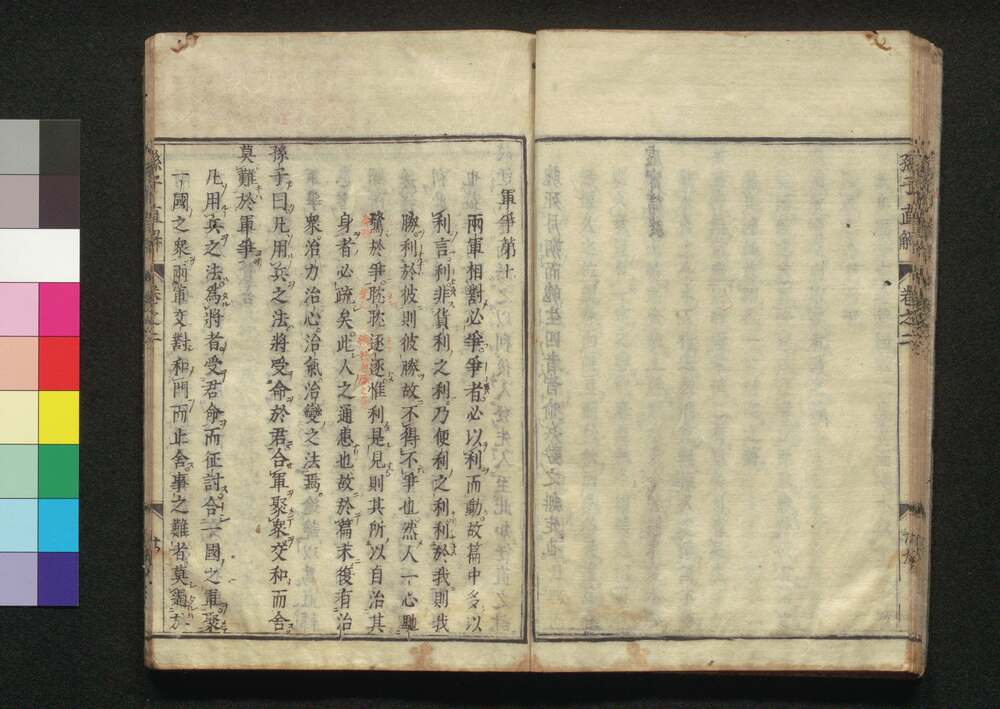 魄死月朔而魄生四者皆喻兵勢之無定也
孫子直解
卷之二
軍爭第十
兩軍相對必爭爭者必以利而動故篇中多以
利言利非貨利之利乃便利之利利於我則我
勝利於彼則彼勝故不得不爭也然人一心馳
騖於爭耽耽逐逐惟利是見則其所以自治其
身者必疏矣此人之通患也故於篇末復有治
衆治力治心治氣治變之法焉
孫子曰凡用兵之法將受命於君合軍聚衆交和而舍
莫難於軍爭
凡用兵之法爲將者受君命而征討合一國之軍聚
一國之衆兩軍交對和門而止舍事之難者莫過於
孫子直解
卷之二